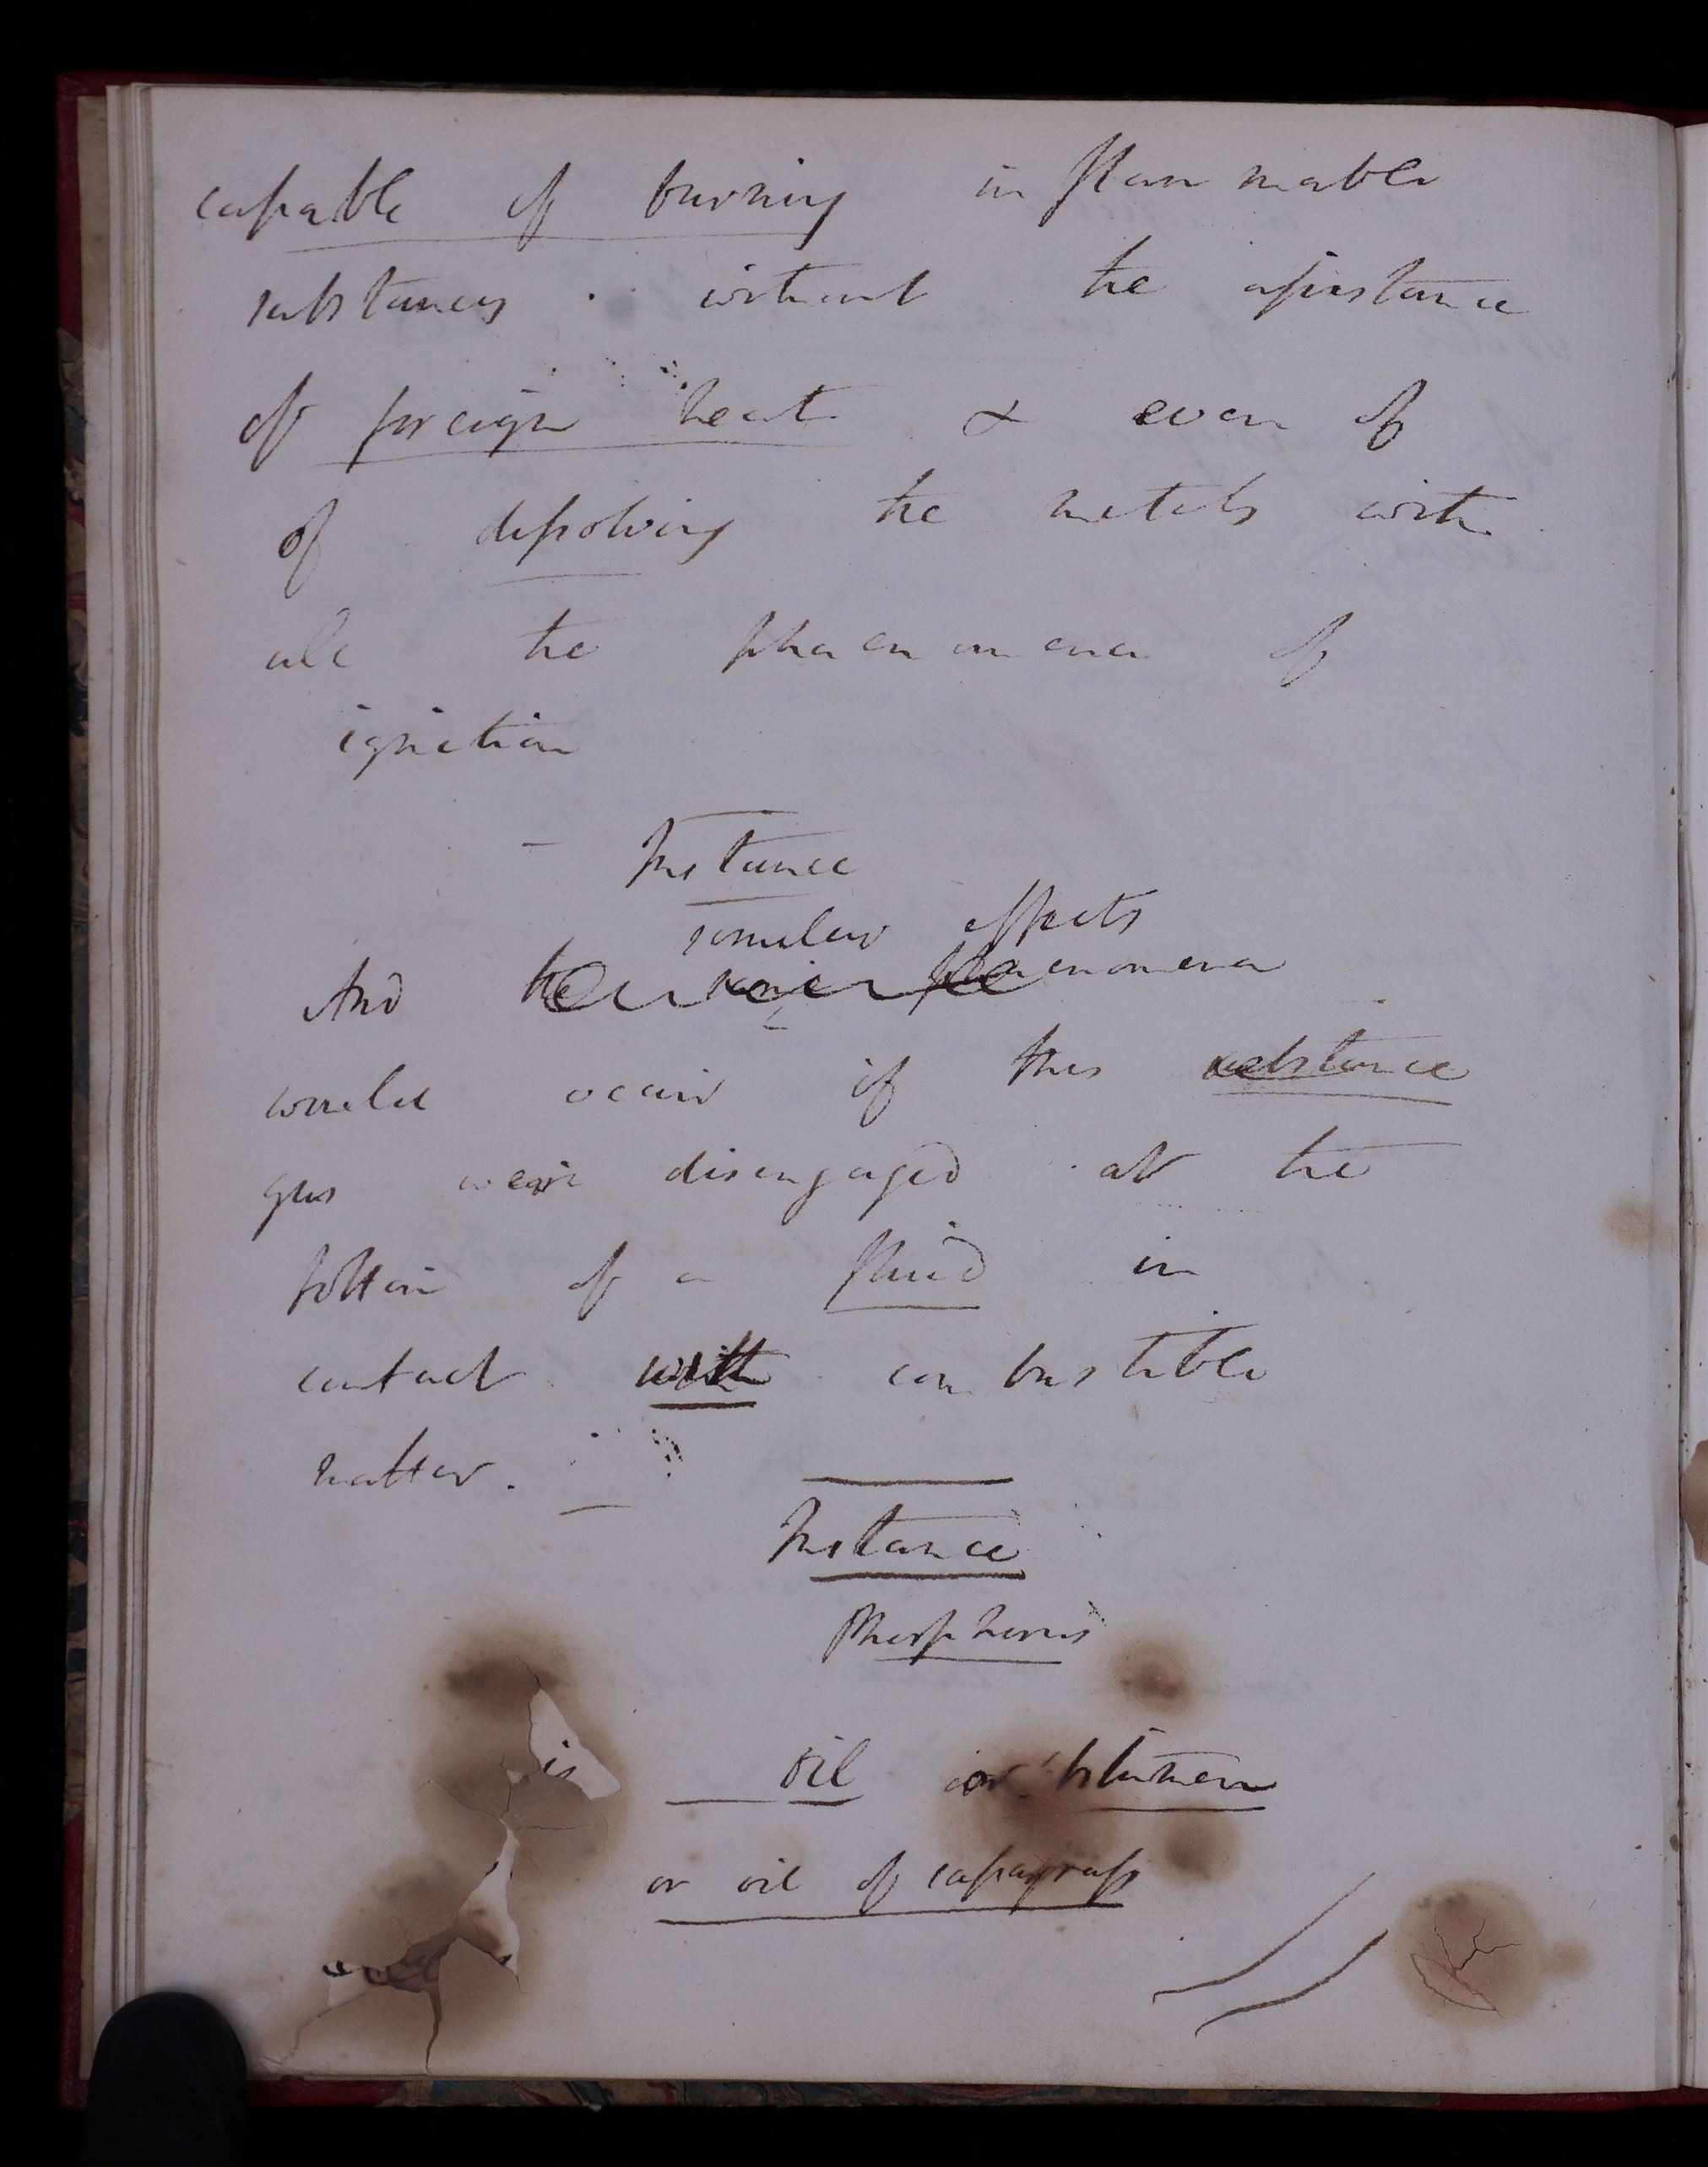 capable of burning inflammable
substances - without the assistance
of foreign heat & even of
of dissolving the metals with
all the phaenomena of
ignition
- Instance
similar effects
And the same phaenomena
would occur if this substance
gas were disengaged at the
bottom of a fluid in
contact with combustible
matter. -
Instance
Phosphorus
oil or bitumen
or oil of sassafrass